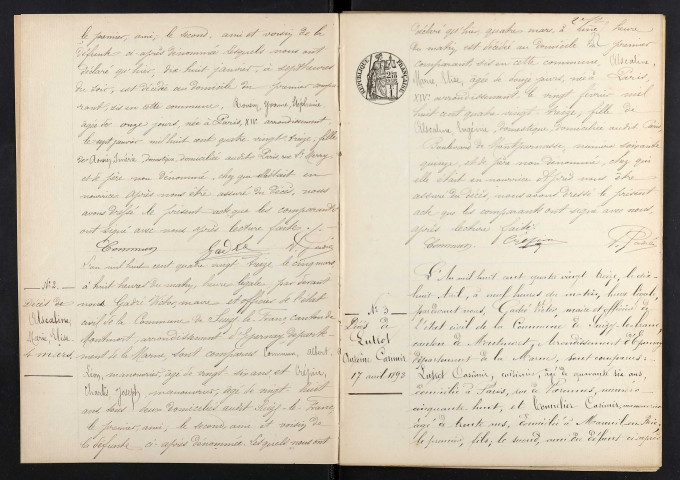 le premier, ami, le second, ami et voisin de la
défunte ci-après dénommée lesquels nous ont
déclaré qu'hier, dix huit janvier, à sept heures
du soir, est décédée au domicile du premier compa-
rant, sis en cette commune, Yvonne, Stéphanie,
âgée de onze jours, née à Paris, XIVe arrondissement
le sept janvier mil huit cent quatre vingt treize, fille
domestique, domiciliée audit Paris rue
et de père non dénommé, chez qui elle était en
nourrice Après nous être assuré du décès, nous
avons dressé le présent acte que les comparants
ont signé avec nous après lecture faite ./.
Commun
L'an mil huit cent quatre vingt treize le cinq mars,
à huit heures du matin, heure légale, par devant
nous Gadré Victor, maire et officier de l'état
civil de la Commune de Suizy-le-Franc canton de
Montmort, arrondissement d'Epernay départe-
ment de la Marne, sont comparus Commun, Albert
Léon, manouvrier, âgé de vingt six ans et Crépin,
Charles Joseph, manouvrier, âgé de vingt huit
ans tous deux domiciliés audit Suizy-le-Franc,
le premier, ami, le second, ami et voisin de
la défunte ci-après dénommée lesquels nous ont
N° 2.
Décès de
Marie, Elise
4 mars
déclaré qu'hier, quatre mars, à heure
du matin, est décédée au domicile du premier
comparant, sis en cette commune,
Marie, Elise, âgée de jours, née à Paris,
XIVe arrondissement, le vingt février mil
huit cent quatre vingt treize, fille de
Eugénie, domestique, domiciliée audit Paris
Boulevard de Montparnasse, numéro soixante
quinze, et de père non dénommé, chez qui
elle était en nourrice Après nous être
assuré du décès, nous avons dressé le présent
acte que les comparants ont signé avec nous,
après lecture faite.
Commun Crépin
RÉPUBLIQUE FRANÇAISE
N° 3
Décès de
Lutiot
Casimir
17 avril 1893
L'An mil huit cent quatre vingt treize, le dix-
huit Avril, à neuf heures du matin, heure légale,
par devant nous, Gadré Victor, maire et officier de
l'état civil de la Commune de Suizy-le-franc,
canton de Montmort, Arrondissement d'Epernay
département de la Marne, sont comparus :
Lutiot Casimir, âgé de quarante six ans,
domicilié à Paris, rue numéro
cinquante huit, et Casimir, manouvrier
âgé de trente ans, domicilié à Mareuil-en-Brie,
le premier, fils, le second, ami du défunt ci-après